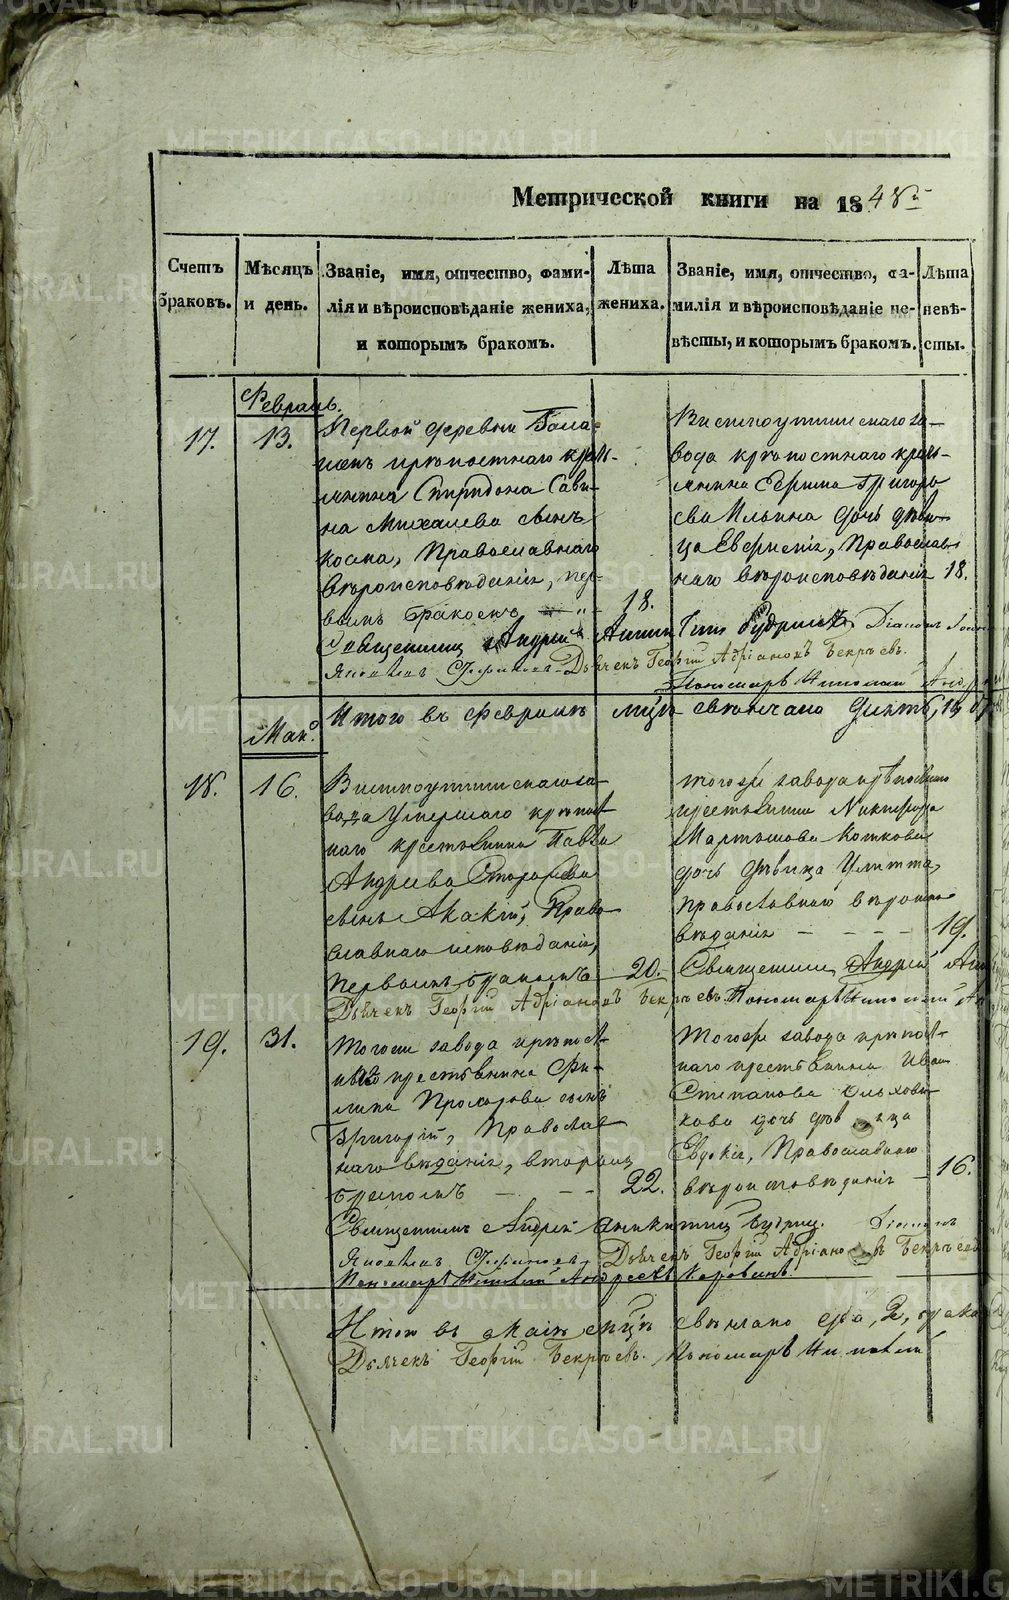 METRIKI.GASO-URAL.RU
Метрической книги на 1848й
Счетъ браковъ.
Мѣсяцъ и день.
Званіе, имя, отчество, фами-
лія и вѣроисповѣданіе жениха,
и которымъ бракомъ.
Лѣта
жениха.
Званіе, имя, отчество, фа-
милія и вѣроисповѣданіе не-
вѣсты, и которымъ бракомъ.
Лѣта
невѣ-
сты.
Февраль.
17.
13.
Первой деревни
крѣпостнаго кресть-
янина Спиридона Сави-
на Михалева сынъ
Косма, Православнаго
вѣроисповѣданія, пер-
вымъ бракомъ
18.
Висимоуткинскаго за-
вода крѣпостнаго кресть-
янина Ефима Григорь
ева Ильина дочь дѣви-
ца Евгенія, Православ-
наго вѣроисповѣданія
18.
Священникъ Андрей Діаконъ
Дьячекъ Георгій Адріановъ Бекрѣевъ.
Пономарь Николай
Итого въ Февралѣ мцѣ свѣнчано
18.
16.
Висимоуткинскаго за-
вода умершаго крѣпост
наго крестьянина Павла
Андреева
сынъ Акакій, Право
славнаго исповѣданія,
первымъ бракомъ
20.
тогоже завода крѣпостнаго
крестьянина Никифора
Мартышова Коткова
дочь дѣвица Улитта,
православнаго вѣроиспо
вѣданія - - - -
19.
Священникъ Андрей
Дьячекъ Георгій Адріановъ Бекрѣевъ. Пономарь Николай
19.
31.
Тогоже завода крѣпост-
наго крестьянина Фи-
липа Прохорова сынъ
Григорій, Православ
наго вѣданія, вторымъ
бракомъ - - -
22.
Тогоже завода крѣпост-
наго крестьянина Иван
Степанова Ольхови-
кова дочь дѣвица
Евдокія, Православнаго
вѣроисповѣданія -
16.
Священникъ Андрей Аникитинъ Будринъ. Діаконъ
Дьячекъ Георгій Адріановъ Бекрѣевъ
Пономарь Николай Андреевъ Коровинъ.
Итого въ Маіѣ мцѣ свѣнчано два, 2, брака
Дьячекъ Георгій Бекрѣевъ. Пономарь Николай